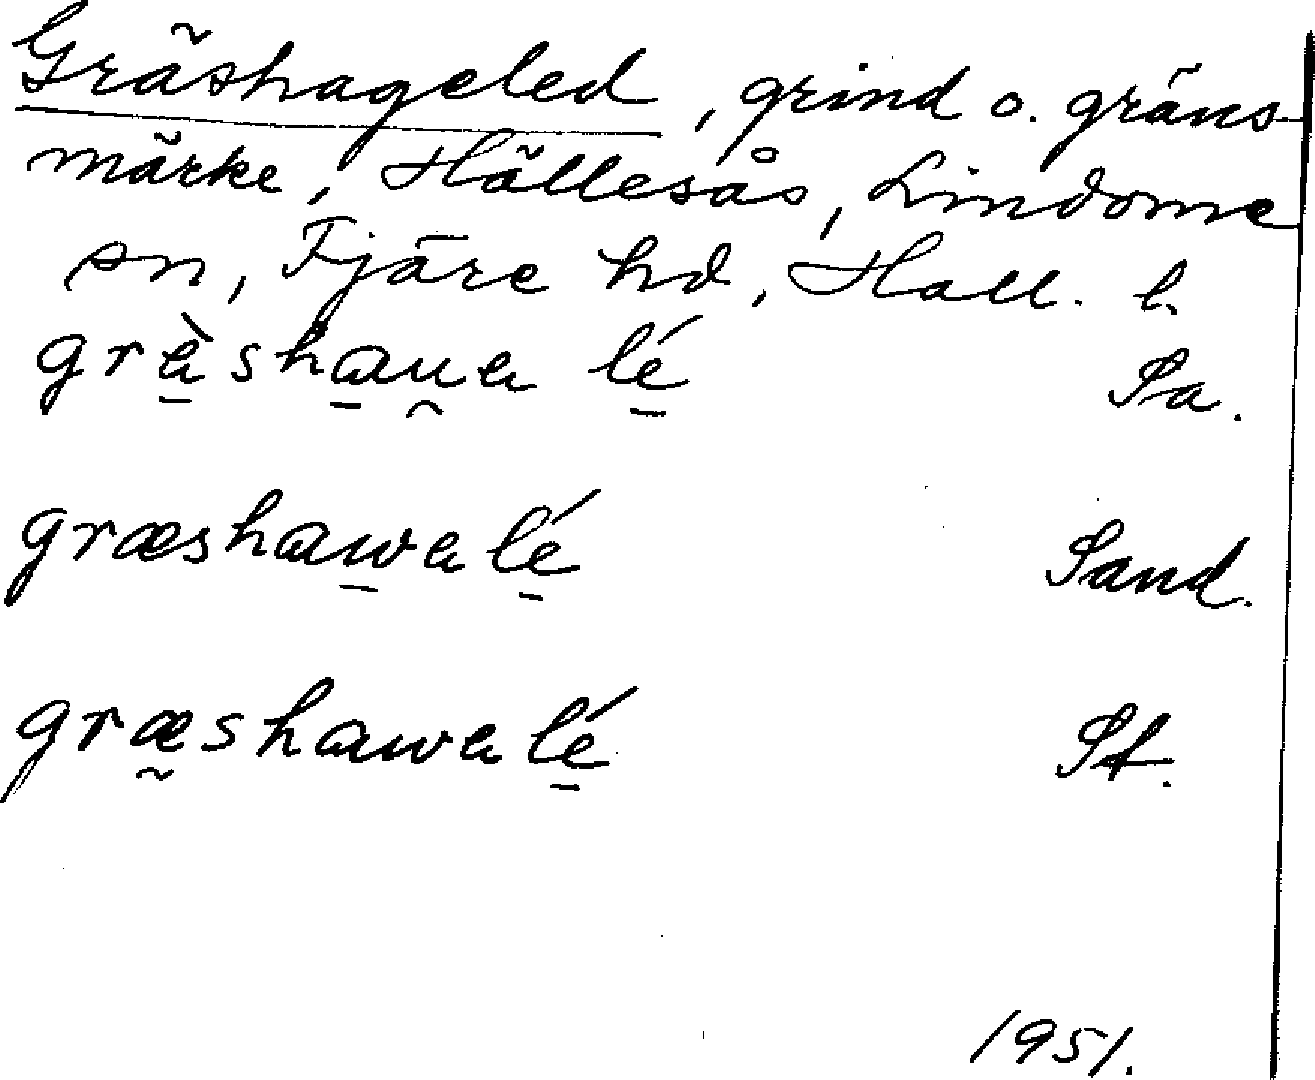 Gräshageled, grind o. gräns-
märke, Hällesås, Lindome
sn, Fjäre hd, Hall. l.
grèshaua lé Sa.
græshawa lé Sand.
græshawa lé St.
1951.